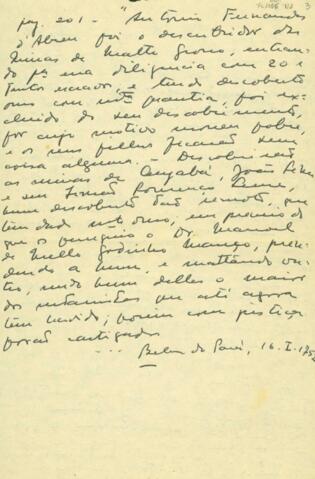 pag. 201 - "Antonio Fernandes
d'Abreu foi o descubridor das
Minas de Matto Grosso, entran-
do pª essa diligencia com 20 e
tantos escravos, e tendo descoberto
ouro com mtª grandeza, foi ex-
cluido do seu descobrimento,
por cujo motivo morreu pobre,
e os seus filhos ficarão sem
cousa alguma. - Descobrirão
as minas de Cuyabá, João Leme
e seu Irmão Lourenço Leme,
hum descoberto tão remoto, que
tem dado mtº ouro, em premio do
que os perseguio o Dr. Manoel
de Mello Godinho Manço, pren-
dendo a hum, e mattando ou-
tro, sendo hum delles o maior
dos sertanistas que até agora
tem havido; porem com justiça
forão castigados
... Belem do Pará, 16. I. 1752